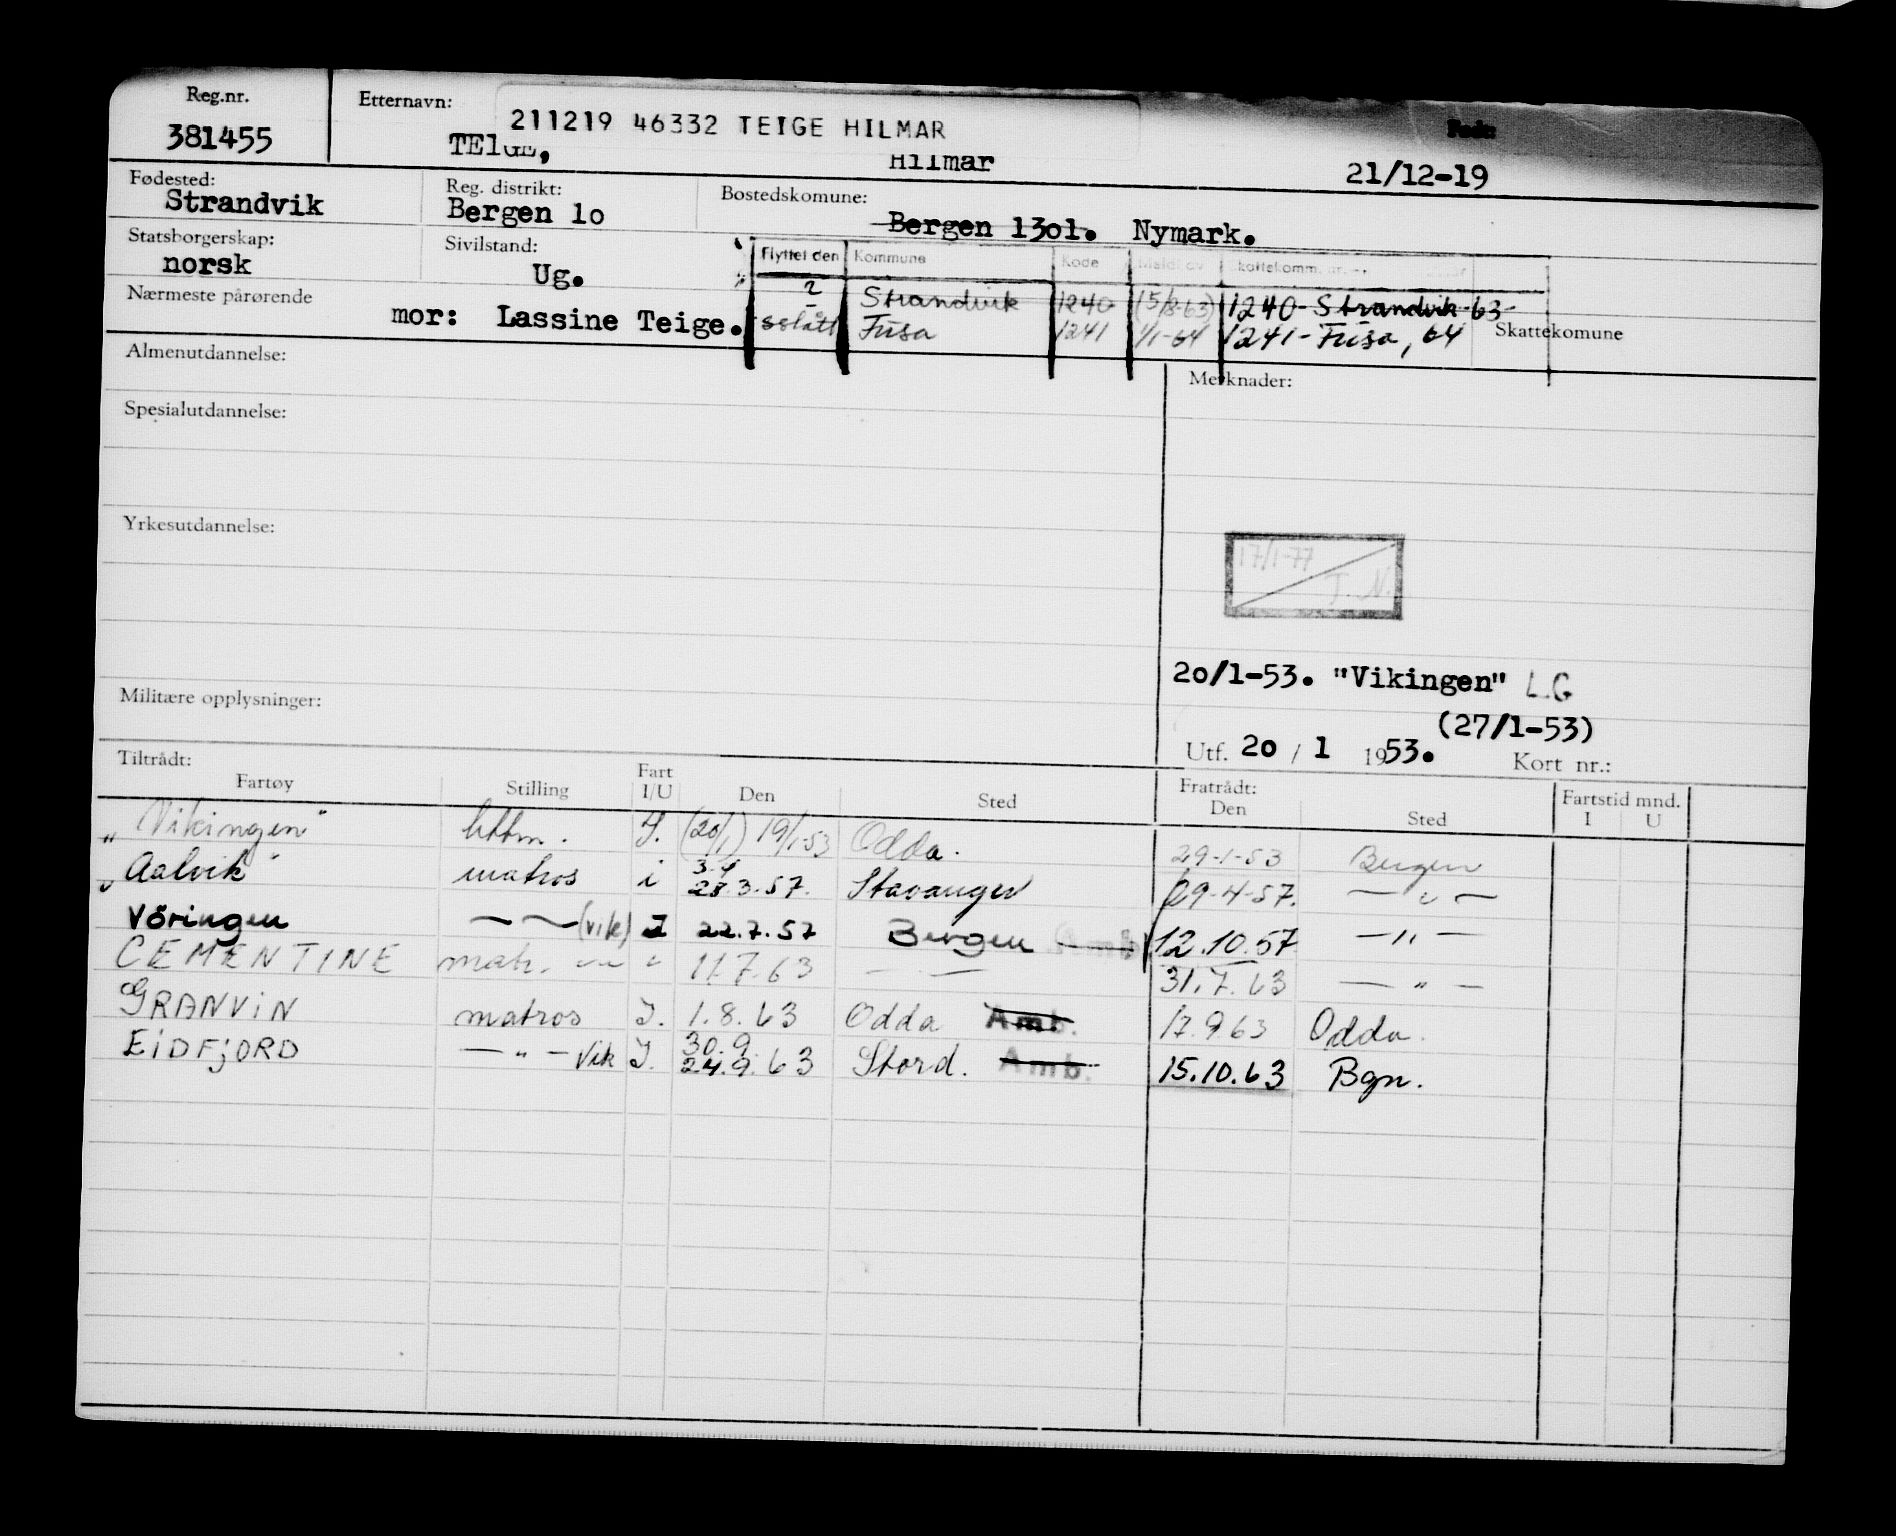 Reg.nr. Etternavn: 211219 46332 TEIGE HILMAR Født:
381455 TEIGE, Hilmar 21/12-19
Fødested: Reg. distrikt: Bostedskomune:
Strandvik Bergen 1o Bergen 13o1. Nymark.
Statsborgerskap: Sivilstand: Flyttet den Kommune Kode Meldt av Skattekomm.
norsk Ug.
2 Strandvik 1240 (15/8-63) 1240-Strandvik-63-
Nærmeste pårørende
mor: Lassine Teige. sslått Fusa 1241 1/1-64 1241-Fusa, 64 Skattekomune
Almenutdannelse: Merknader:
Spesialutdannelse:
Yrkesutdannelse:
17/1-77
T. N.
20/1-53. "Vikingen" L.G
Militære opplysninger: (27/1-53)
Utf. 20 / 1 1953. Kort nr.:
Tiltrådt: Fratrådt: Fartstid mnd.
Fartøy Stilling Fart I/U Den Sted Den Sted I U
"Vikingen" lettm. I. (20/1) 19/1-53 Odda. 29-1-53 Bergen
"Aalvik" matros i 3.4 28.3.57. Stavanger 29-4-57. — " —
Vöringen — " — (vik) I 22.7.57 Bergen Amb 12.10.57 — " —
CEMENTINE matr. — " — " 11.7.63 — " — 31.7.63 — " —
GRANVIN matros I. 1.8.63 Odda Amb. 17.9.63 Odda.
EIDFJORD — " — Vik I. 30.9. 24.9.63 Stord. Amb. 15.10.63 Bgn.